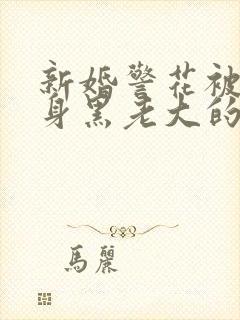 新婚警花被
身黑老大的
馬麗